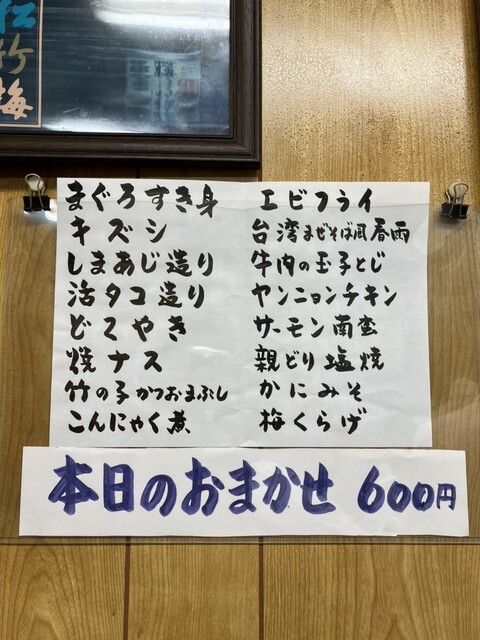 松竹梅
まぐろすき身
キズシ
しまあじ造り
活タコ造り
どてやき
焼ナス
竹の子かつおまぶし
こんにゃく煮
エビフライ
台湾まぜそば風春雨
牛肉の玉子とじ
ヤンニョンチキン
サーモン南蛮
親どり塩焼
かにみそ
梅くらげ
本日のおまかせ 600円